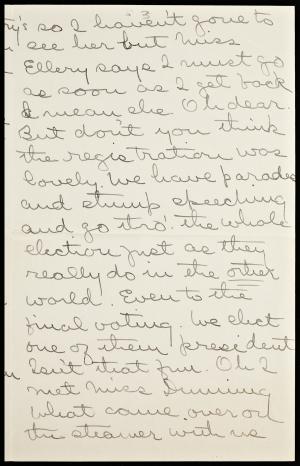 3
ry's so I haven't gone to
see her but Miss
Ellery says I must go
as soon as I get back
I mean she. Oh dear.
But don't you think
the registration was
lovely. We have parades
and stump speeching
and go thro' the whole
election just as they
really do in the other
world. Even to the
final voting. We elect
one of them president
Isn't that fun. Oh I
met Miss
What came over on
the steamer with us